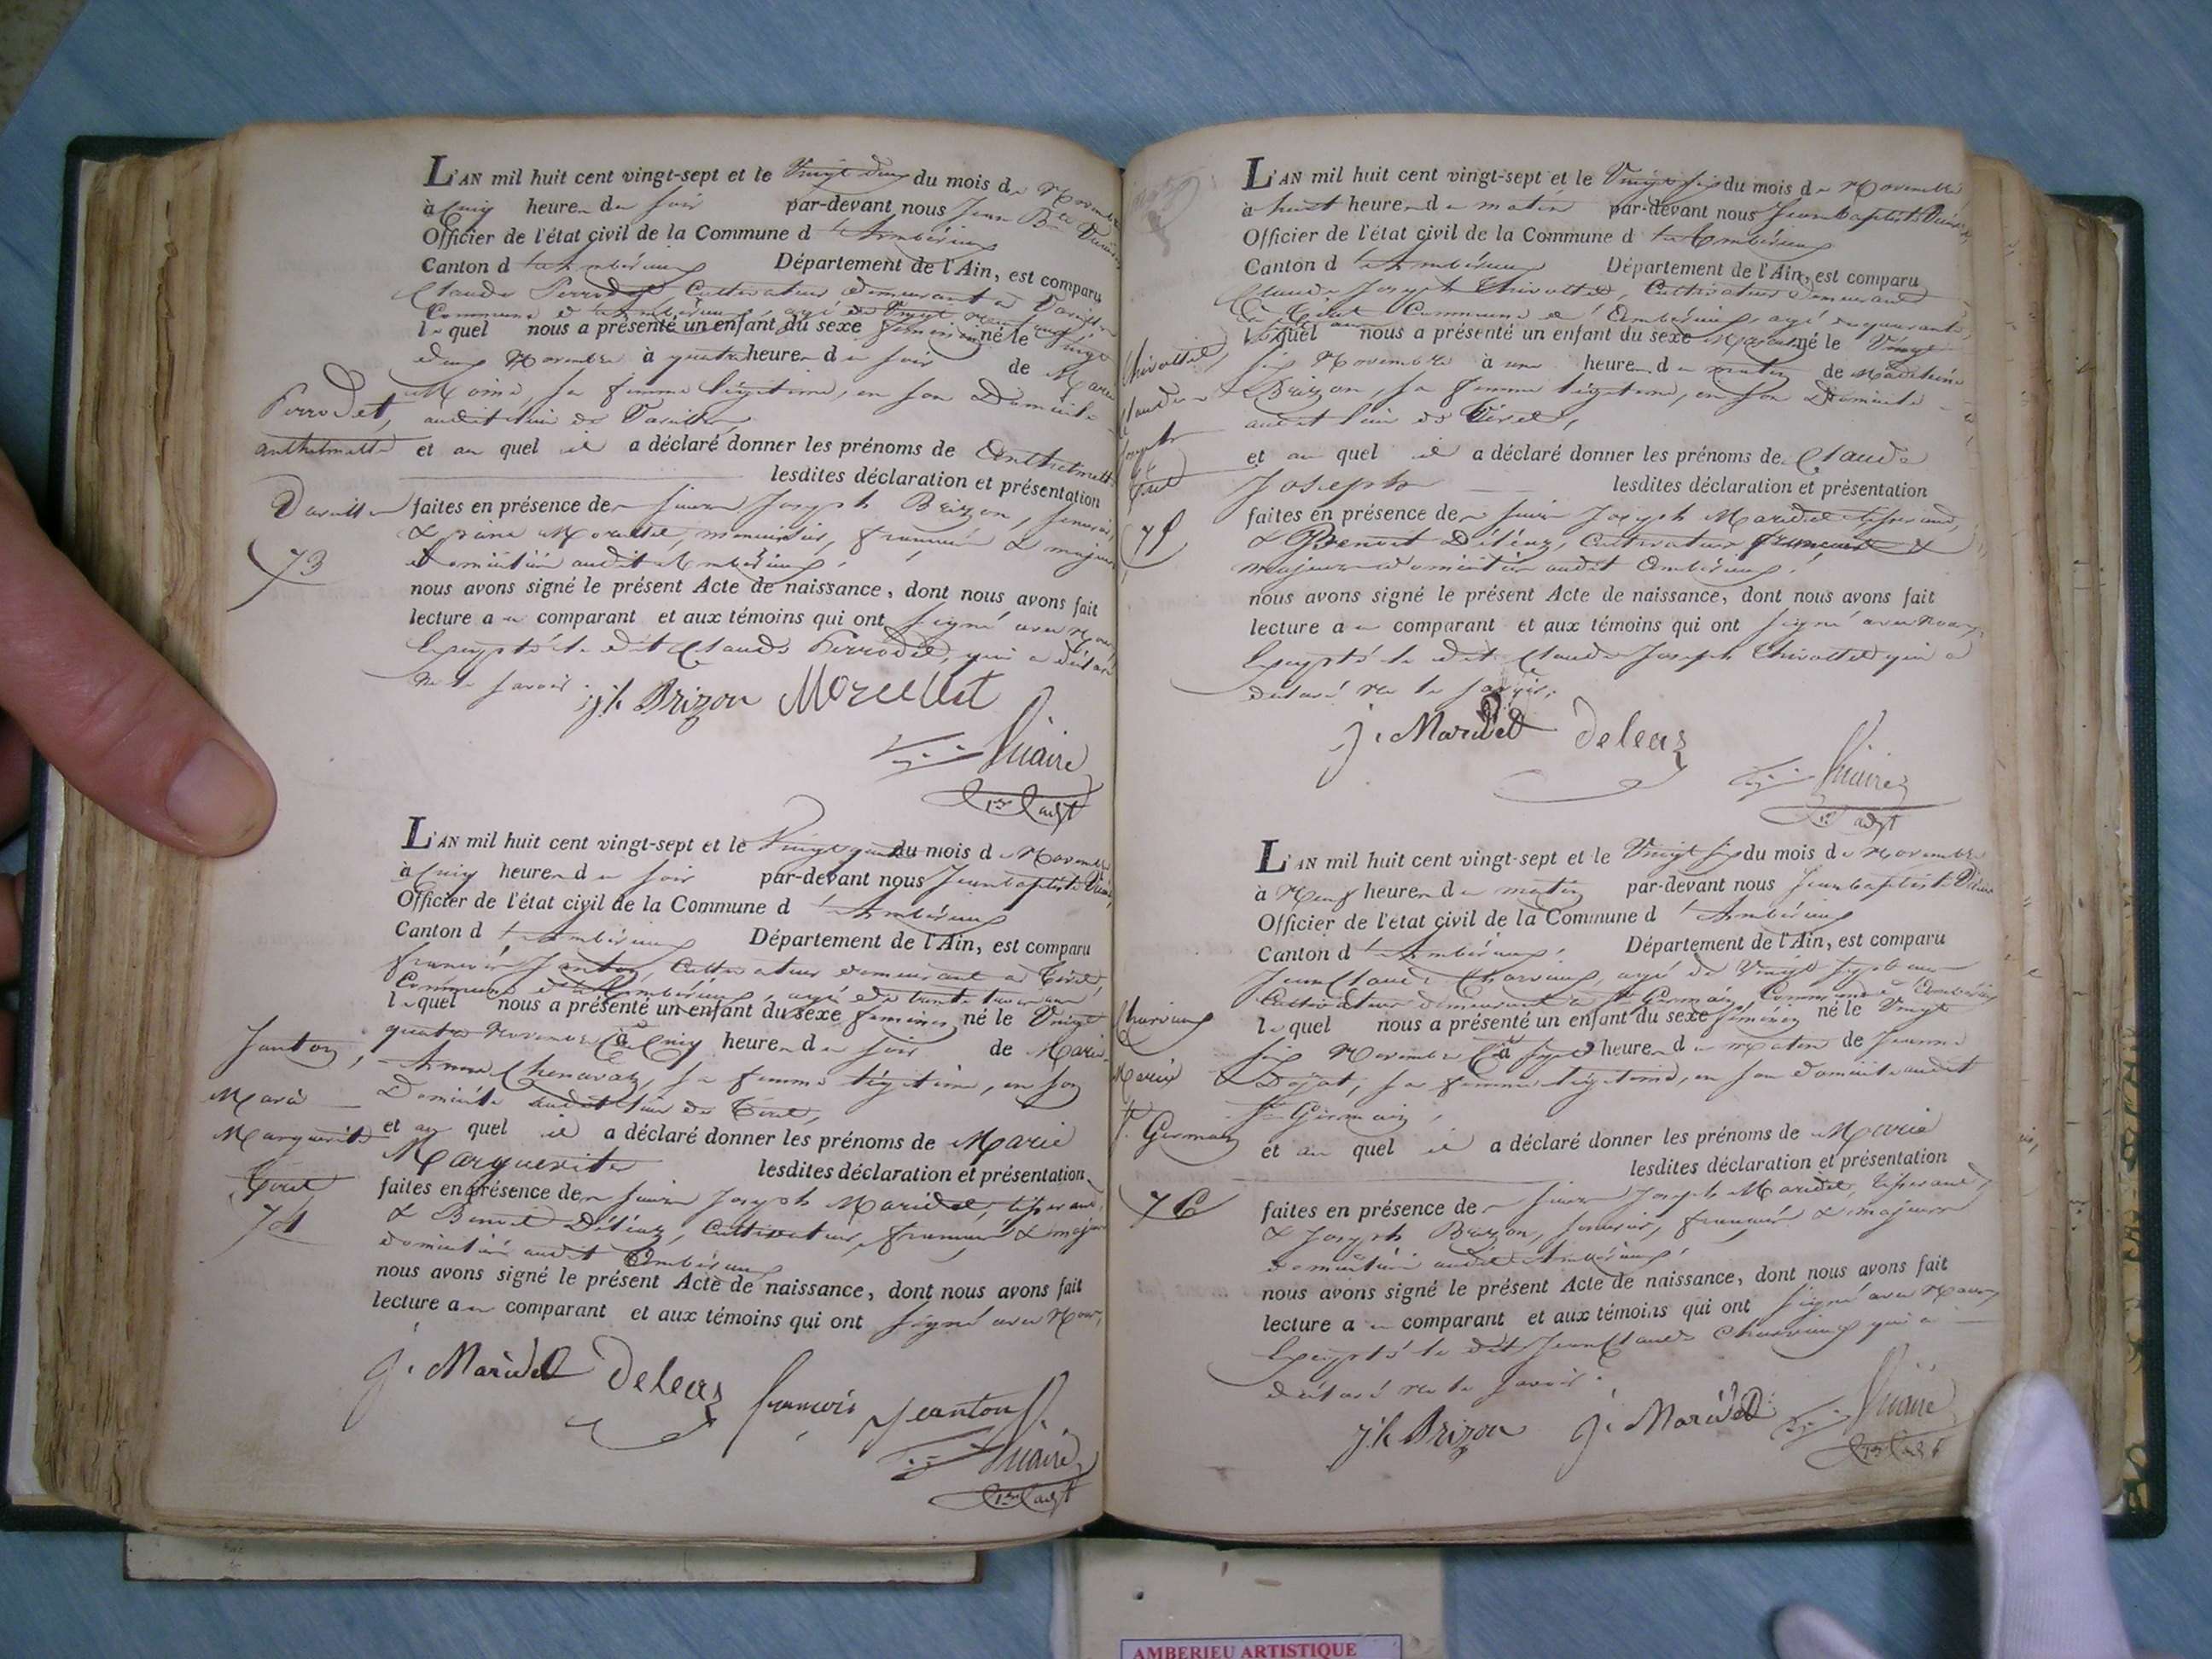 L'AN mil huit cent vingt-sept et le Vingt deux du mois de Novembre
à Cinq heures du soir par-devant nous Jean Bte
Officier de l'état civil de la Commune d'Ambérieux
Canton d'Ambérieux Département de l'Ain, est comparu
Claude Perrodet Cultivateur demeurant à Vareilles
Commune d'Ambérieux, agé de Vingt neuf ans
lequel nous a présenté un enfant du sexe féminin né le Vingt
deux Novembre à quatre heures du soir de Marie
Moine, sa femme légitime, en son Domicile
audit lieu de Vareilles,
et auquel il a déclaré donner les prénoms de Anthelmette
lesdites déclaration et présentation
faites en présence de Joseph Brizon,
& Morellet, menuisier, français & majeurs
domiciliés audit Ambérieux,
nous avons signé le présent Acte de naissance, dont nous avons fait
lecture au comparant et aux témoins qui ont signé avec Nous
Excepté le dit Claude Perrodet, qui a déclaré
ne le savoir.
jh Brizon Morellet
Perrodet,
anthelmette
Vareilles
73
L'AN mil huit cent vingt-sept et le Vingt quatre du mois de Novembre
à Cinq heures du soir par-devant nous Jean baptiste
Officier de l'état civil de la Commune d'Ambérieux
Canton d'Ambérieux Département de l'Ain, est comparu
françois Janton, Cultivateur demeurant à Tiret,
Commune d'Ambérieux, agé de trente ans
lequel nous a présenté un enfant du sexe féminin né le Vingt
quatre Novembre à Cinq heures du soir de Marie
Anne Chenavaz, sa femme légitime, en son
Domicile audit lieu de Tiret,
et auquel il a déclaré donner les prénoms de Marie
Marguerite lesdites déclaration et présentation
faites en présence de Joseph Maridet, tisserand,
& Benoit Déléaz, Cultivateur, français & majeurs
domiciliés audit Ambérieux
nous avons signé le présent Acte de naissance, dont nous avons fait
lecture au comparant et aux témoins qui ont signé avec Nous,
j. Maridet Deleaz françois Jeanton
Janton,
Marie
Marguerite
Tiret
74
L'AN mil huit cent vingt-sept et le Vingt six du mois de Novembre
à huit heures du matin par-devant nous Jean baptiste
Officier de l'état civil de la Commune d'Ambérieux
Canton d'Ambérieux Département de l'Ain, est comparu
Claude Joseph Chivollet, Cultivateur demeurant
à Tiret Commune d'Ambérieux, agé de quarante
lequel nous a présenté un enfant du sexe Masculin né le Vingt
six Novembre à une heure du matin de
Brizon, sa femme légitime, en son Domicile
audit lieu de Tiret,
et auquel il a déclaré donner les prénoms de Claude
Joseph lesdites déclaration et présentation
faites en présence de Joseph Maridet tisserand,
& Benoit Déléaz, Cultivateur français &
majeurs domiciliés audit Ambérieux,
nous avons signé le présent Acte de naissance, dont nous avons fait
lecture au comparant et aux témoins qui ont signé avec Nous,
Excepté le dit Claude Joseph Chivollet qui a
déclaré ne le savoir.
j. Maridet Deleaz
Chivollet,
Claude
Joseph
Tiret
75
L'AN mil huit cent vingt-sept et le Vingt six du mois de Novembre
à Neuf heures du matin par-devant nous Jean baptiste
Officier de l'état civil de la Commune d'Ambérieux
Canton d'Ambérieux. Département de l'Ain, est comparu
Jean Claude Charvieux, agé de Vingt sept ans
Cultivateur demeurant à St Germain, Commune d'Ambérieux
lequel nous a présenté un enfant du sexe féminin né le Vingt
six Novembre à sept heures du matin de Jeanne
Dojat, sa femme légitime, en son domicile audit
St Germain,
et auquel il a déclaré donner les prénoms de Marie
lesdites déclaration et présentation
faites en présence de Joseph Maridet, tisserand,
& Joseph Brizon, français & majeurs
domiciliés audit Ambérieux,
nous avons signé le présent Acte de naissance, dont nous avons fait
lecture au comparant et aux témoins qui ont signé avec Nous,
Excepté le dit Jean Claude Charvieux qui a
déclaré ne le savoir.
jh Brizon j. Maridet
Charvieux
Marie
St Germain
76
AMBERIEU ARTISTIQUE